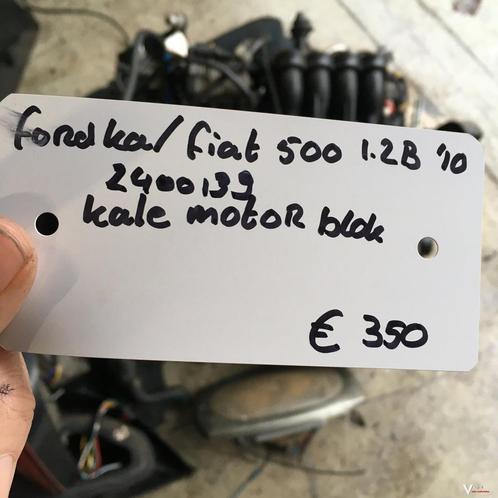 ford ka/ fiat 500 1.2B '10
2400139
kale motor blok
€ 350